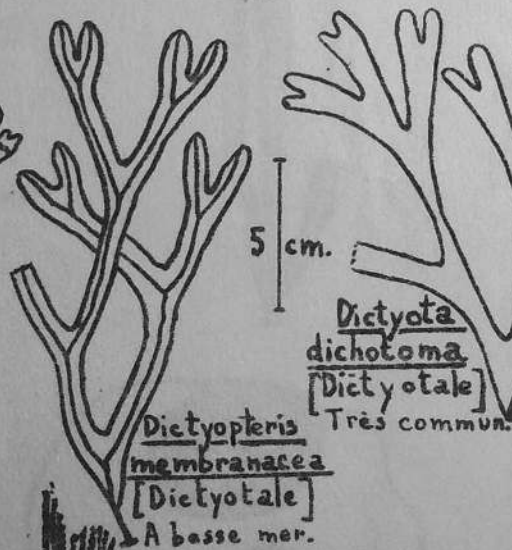 5 cm.
Dictyota
dichotoma
[Dictyotale]
Très commun.
Dictyopteris
membranacea
[Dictyotale]
A basse mer.